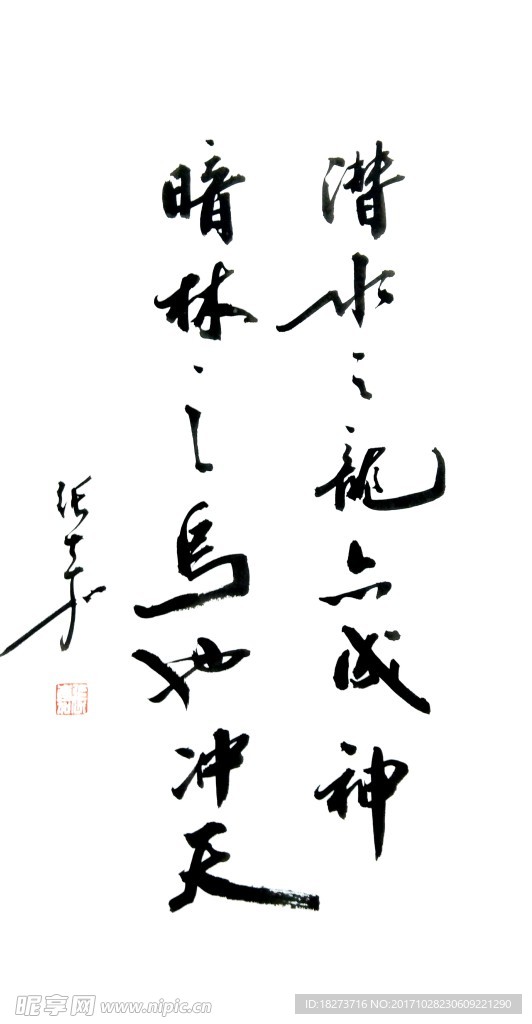 潜水之龍亦成神
暗林之鸟也冲天
昵享网 www.nipic.cn
ID:18273716 NO:20171028230609221290